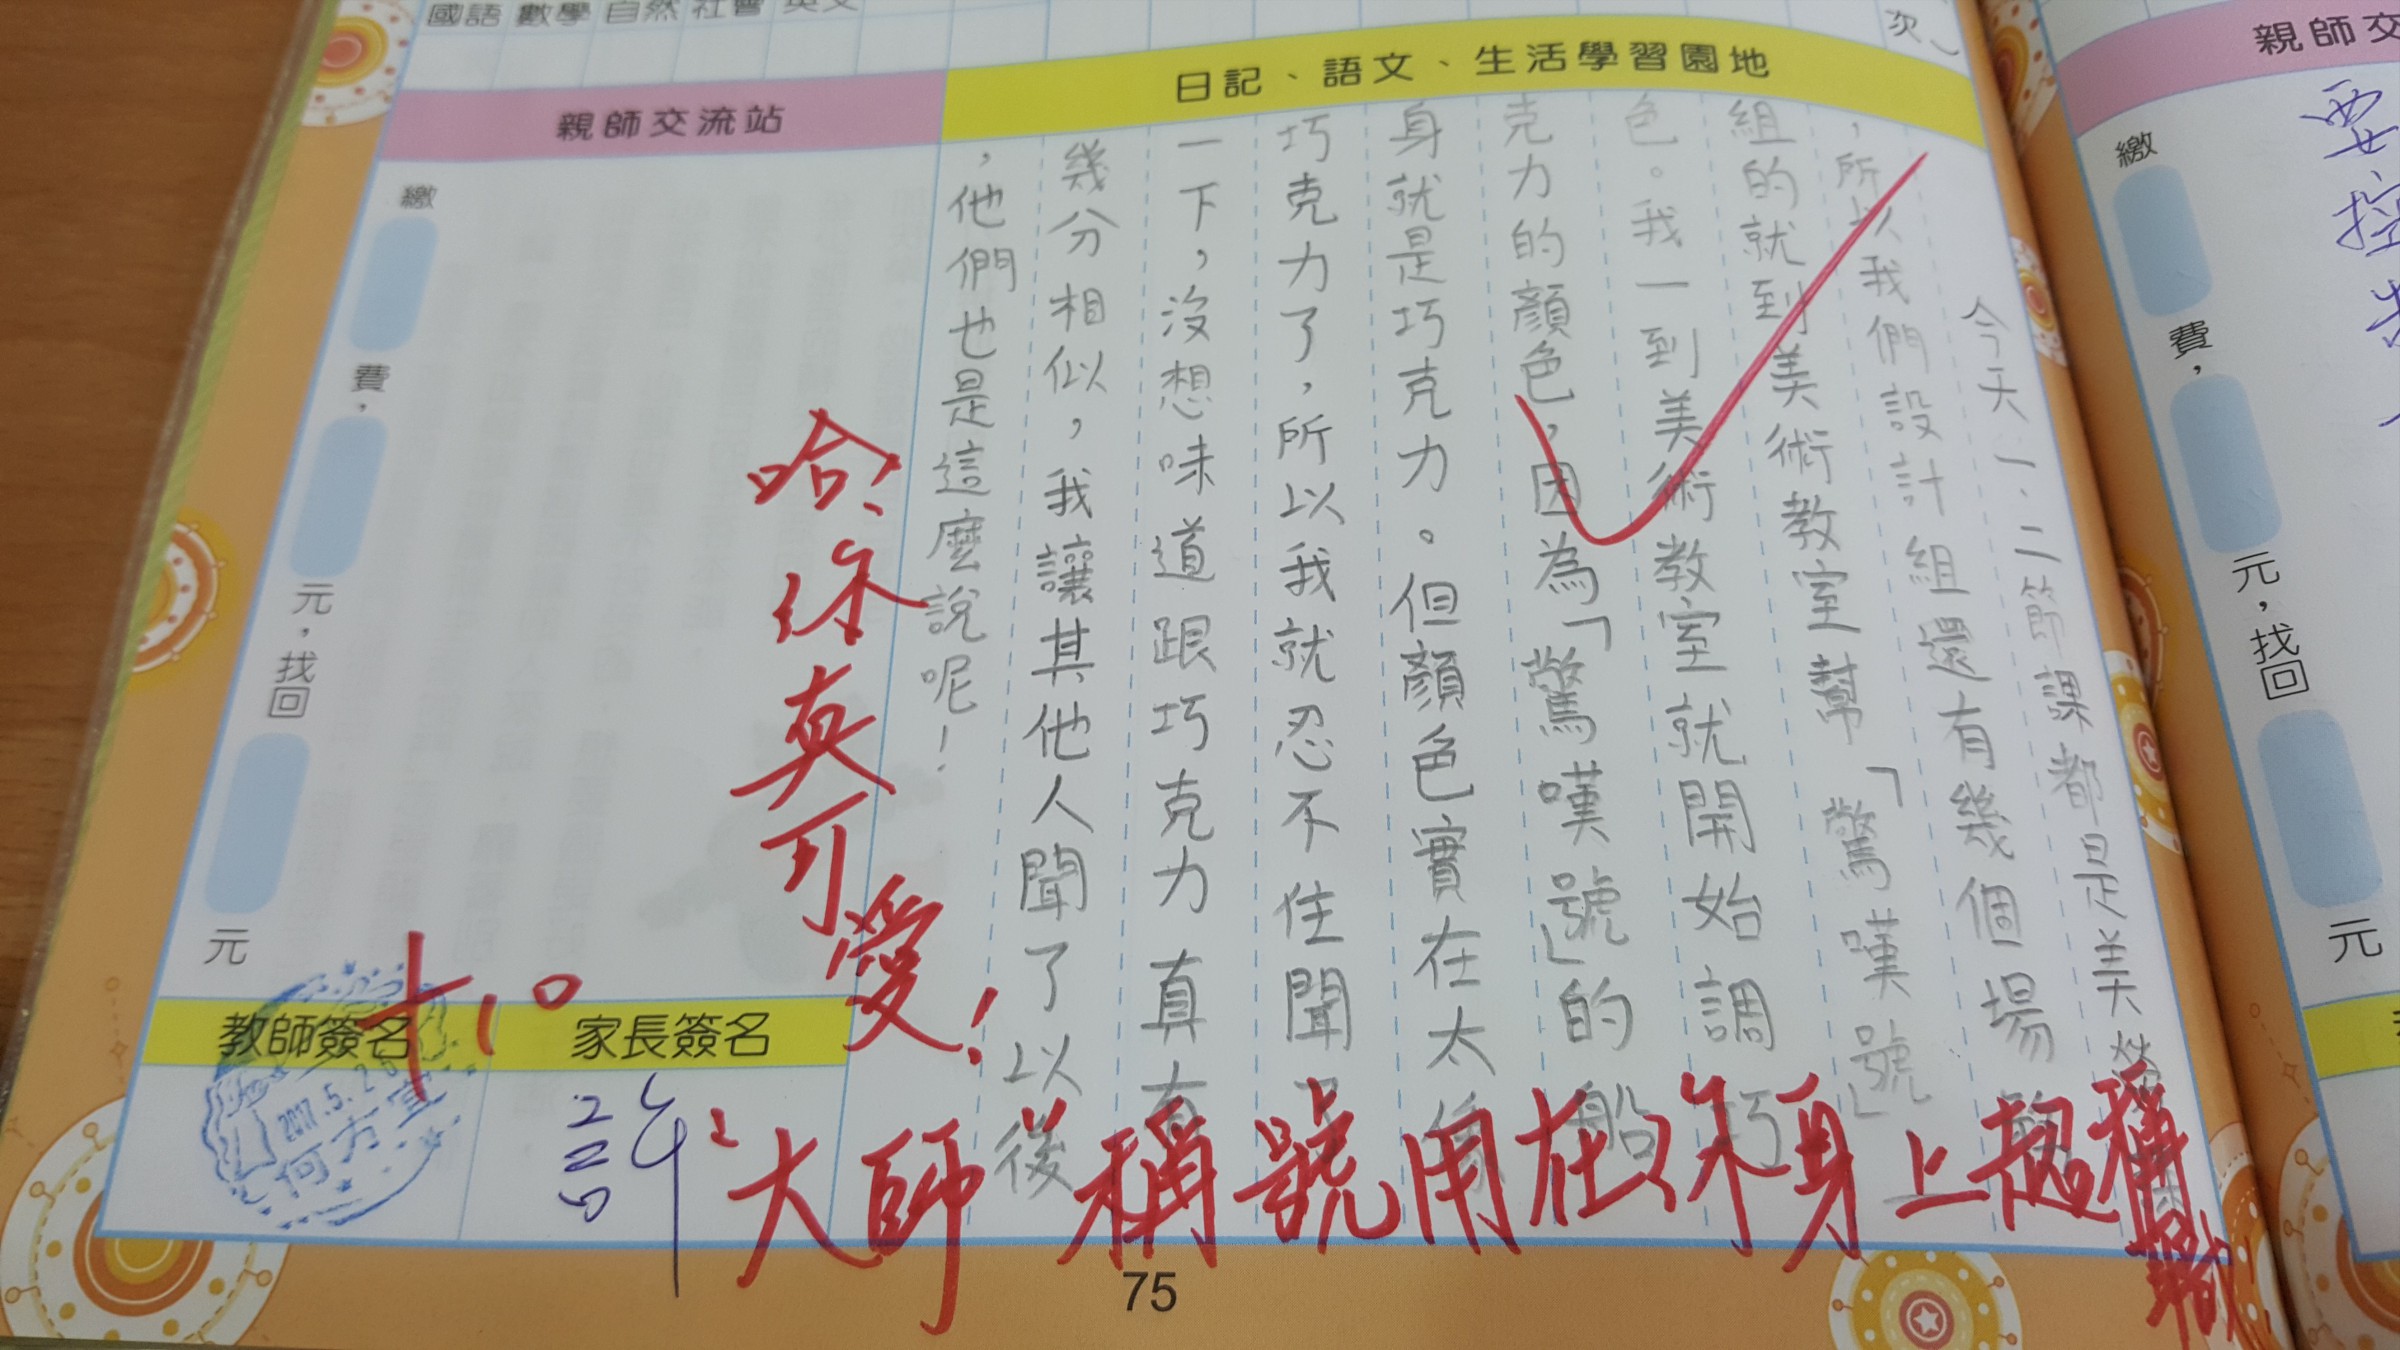 國語 數學 自然 社會 英文
次
日記、語文、生活學習園地
今天一、二節課都是美勞
，所以我們設計組還有幾個場
組的就到美術教室幫「驚嘆號」
色。我一到美術教室就開始調巧
克力的顏色，因為「驚嘆號」的船
身就是巧克力。但顏色實在太像
巧克力了，所以我就忍不住聞了
一下，沒想味道跟巧克力真有
幾分相似，我讓其他人聞了以後
，他們也是這麼說呢！
哈！你真可愛！
大師稱號用在你身上超稱職
親師交流站
繳
費，
元，找回
元
+10
教師簽名
家長簽名
2017.5.26
許
75
親師交
要控
繳
費，
元，找回
元